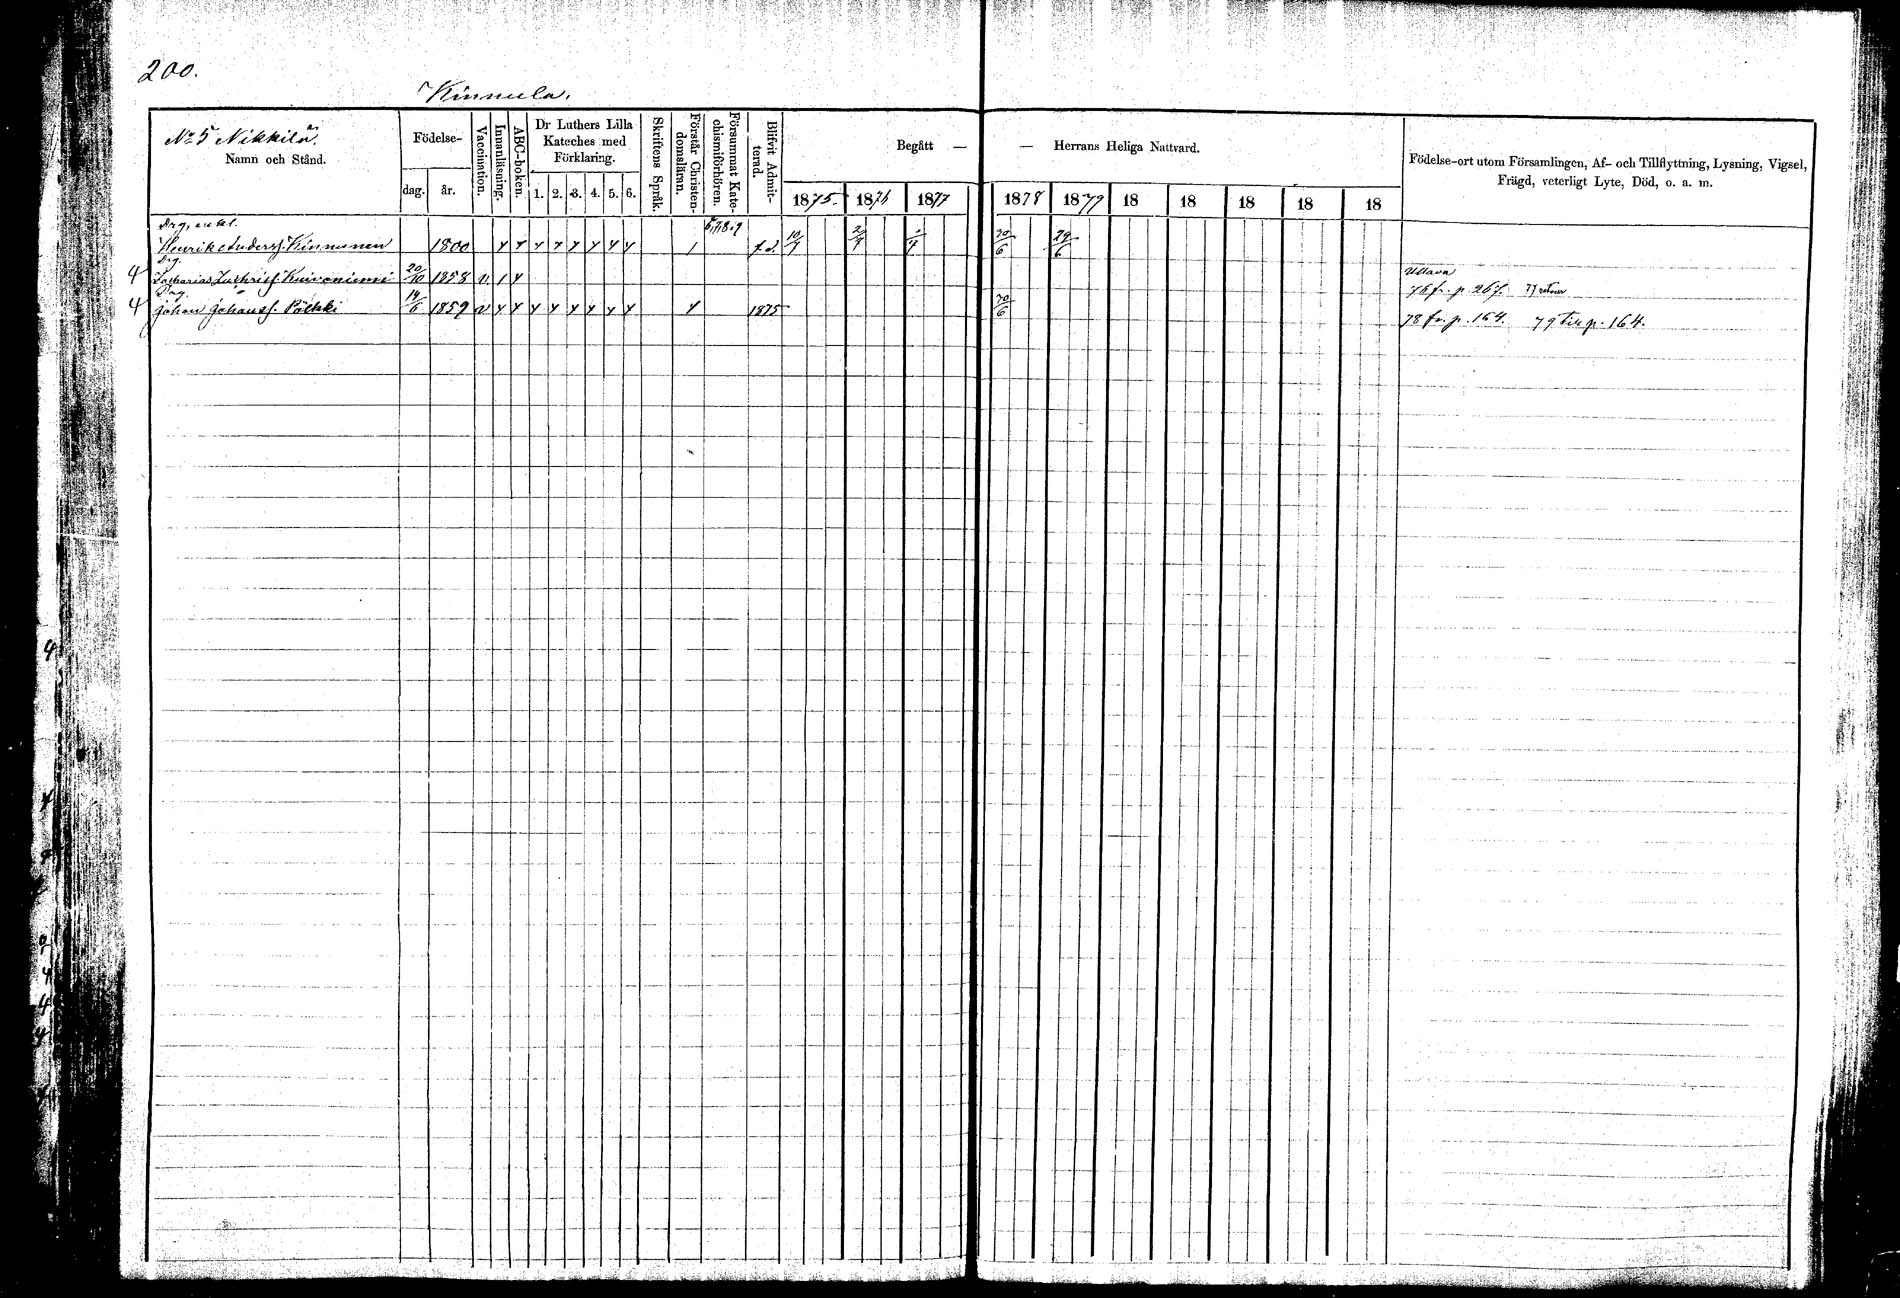 200.
Kinnula.
No 5 Nikkilä
Namn och Stånd.
Födelse-
dag.
år.
Vaccination.
Innanläsning.
ABC-boken.
Dr Luthers Lilla
Kateches med
Förklaring.
1. 2. 3. 4. 5. 6.
Skriftens Språk.
Förstår Christen-
domsläran.
Försummat Kate-
chismiförhören.
Blifvit Admit-
terad.
Begått — — Herrans Heliga Nattvard.
1875. 1876 1877 1878 1879 18 18 18 18 18
Födelse-ort utom Församlingen, Af- och Tillflyttning, Lysning, Vigsel,
Frägd, veterligt Lyte, Död, o. a. m.
Drg, enkl.
Henrik Anderss. Kinnunen 1800 30/6 29/6
Drg.
Zacharias Kuironiemi 20/10 1858 v.
Ullava
76 fr. p. 267.
Drg.
Johan Johanss. Pölkki 14/6 1859 v 1875 30/6
78 fr. p. 164. 79 p. 164.